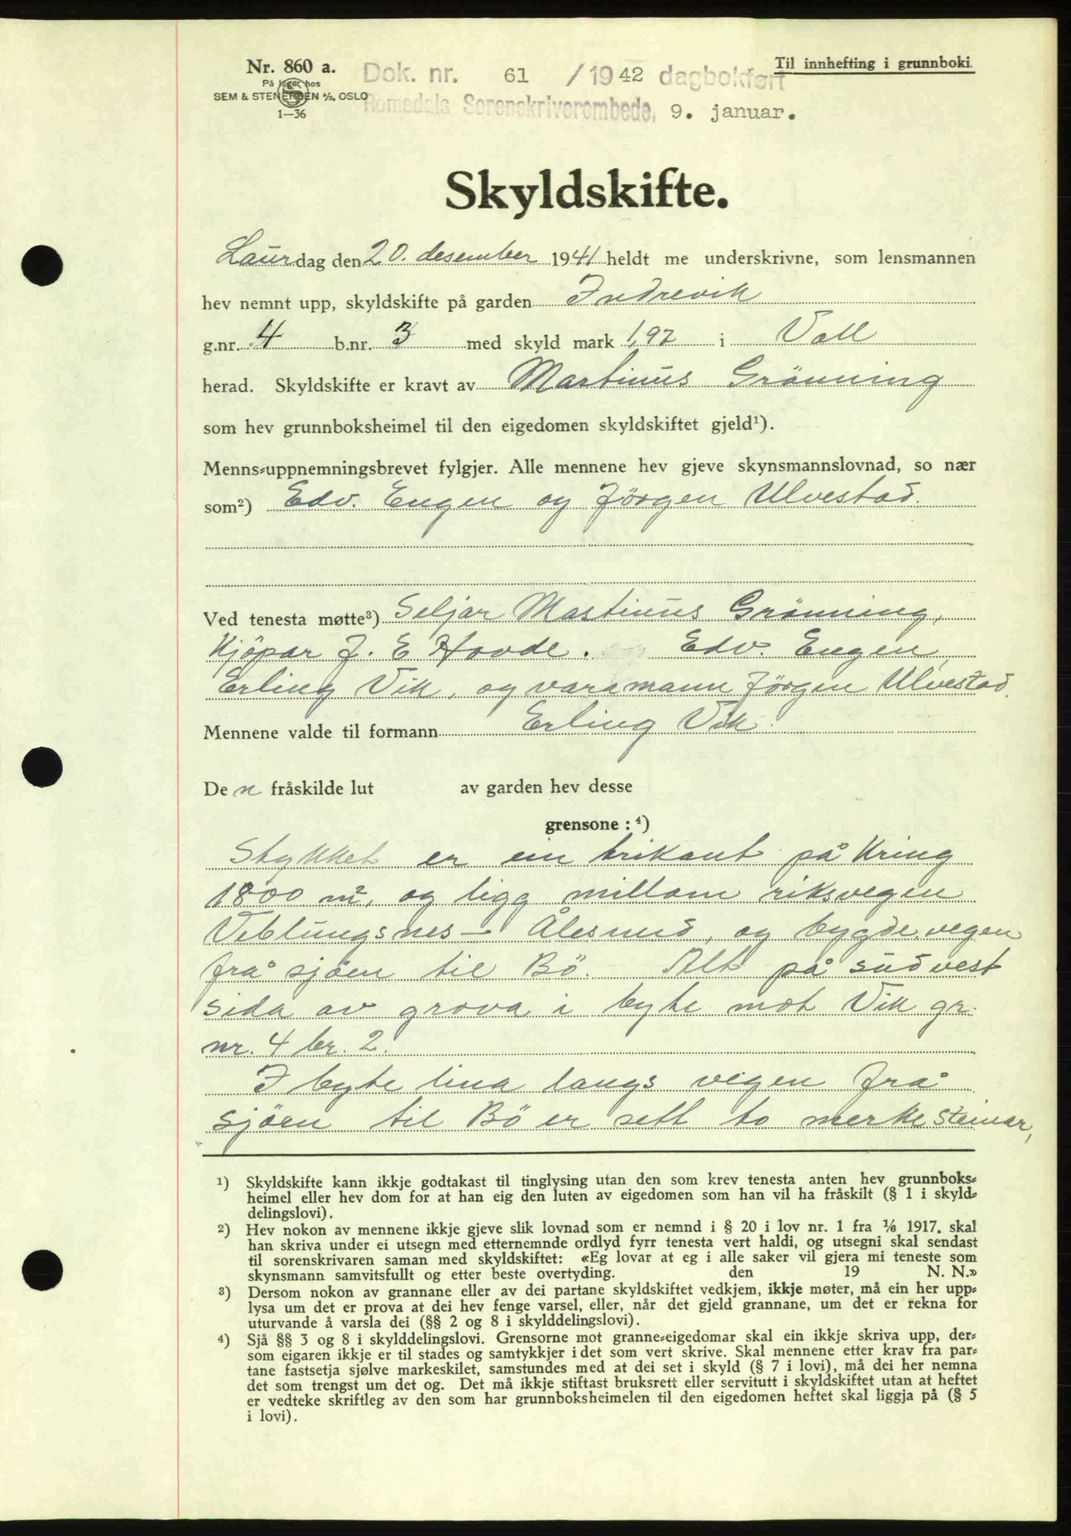 Nr. 860 a.
På lager hos
SEM & STENERSEN A/S, OSLO
1—36
Dok. nr. 61 / 1942 dagbokført
Romsdals Sorenskriverembede, 9. januar.
Til innhefting i grunnboki.
Skyldskifte.
Laurdag den 20. desember 1941 heldt me underskrivne, som lensmannen
hev nemnt upp, skyldskifte på garden Indrevik
g.nr. 4 b.nr. 3 med skyld mark 1,92 i Voll
herad. Skyldskifte er kravt av Martinus Grönning
som hev grunnboksheimel til den eigedomen skyldskiftet gjeld¹).
Menns-uppnemningsbrevet fylgjer. Alle mennene hev gjeve skynsmannslovnad, so nær
som²) Edv. Engen og Jörgen Ulvestad.
Ved tenesta møtte³) Seljar Martinus Grönning,
Kjöpar J. E Hovde. Edv. Engen,
Erling Vik, og varamann Jörgen Ulvestad.
Mennene valde til formann Erling Vik.
Den fråskilde lut av garden hev desse
grensone : ⁴)
Stykket er ein trikant på kring
1800 m², og ligg millom riksvegen
Veblungsnes – Ålesund, og bygdevegen
frå sjöen til Bö. Alt på südvest
sida av grova i byte mot Vik gr.
nr. 4 br. 2.
I byte lina langs vegen frå
sjöen til Bö er sett to merkesteinar,
¹) Skyldskifte kann ikkje godtakast til tinglysing utan den som krev tenesta anten hev grunnboks-
heimel eller hev dom for at han eig den luten av eigedomen som han vil ha fråskilt (§ 1 i skyld-
delingslovi).
²) Hev nokon av mennene ikkje gjeve slik lovnad som er nemnd i § 20 i lov nr. 1 fra 1/6 1917, skal
han skriva under ei utsegn med etternemnde ordlyd fyrr tenesta vert haldi, og utsegni skal sendast
til sorenskrivaren saman med skyldskiftet: «Eg lovar at eg i alle saker vil gjera mi teneste som
skynsmann samvitsfullt og etter beste overtyding. den 19 N. N.»
³) Dersom nokon av grannane eller av dei partane skyldskiftet vedkjem, ikkje møter, må ein her upp-
lysa um det er prova at dei hev fenge varsel, eller, når det gjeld grannane, um det er rekna for
uturvande å varsla dei (§§ 2 og 8 i skylddelingslovi).
⁴) Sjå §§ 3 og 8 i skylddelingslovi. Grensorne mot granne-eigedomar skal ein ikkje skriva upp, der-
som eigaren ikkje er til stades og samtykkjer i det som vert skrive. Skal mennene etter krav fra par-
tane fastsetja sjølve markeskilet, samstundes med at dei set i skyld (§ 7 i lovi), må dei her nemna
det som trengst um det og. Det må ikkje stiftast bruksrett eller servitutt i skyldskiftet utan at heftet
er vedteke skriftleg av den som har grunnboksheimelen til den eigedomen heftet skal liggja på (§ 5
i lovi).